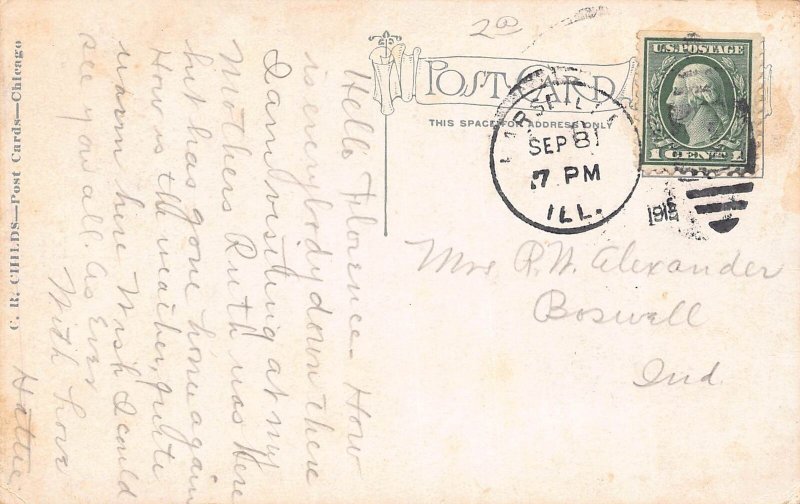 2⁰⁰
POST CARD
THIS SPACE FOR ADDRESS ONLY
U.S. POSTAGE
1 CENT 1
SEP 8
7 PM
ILL.
Mrs P. W. Alexander
Boswell
Ind.
Hello Florence. How
is everybody down there
I am visiting at my
Mothers Ruth was here
but has gone home again
How is the weather, quite
warm here Wish I could
see you all. As Ever
With Love
Hattie.
C. R. CHILDS—Post Cards—Chicago